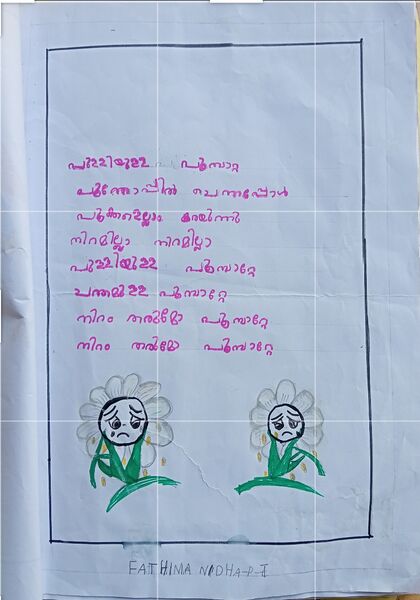 പുള്ളിയുള്ള പൂമ്പാറ്റ
പൂന്തോപ്പിൽ ചെന്നപ്പോൾ
പൂക്കളെല്ലാം കരയുന്നു
നിറമില്ലാ നിറമില്ലാ
പുള്ളിയുള്ള പൂമ്പാറ്റേ
ചന്തമുള്ള പൂമ്പാറ്റേ
നിറം തരുമോ പൂമ്പാറ്റേ
നിറം തരുമോ പൂമ്പാറ്റേ
FATHIMA NIDHA-P-II